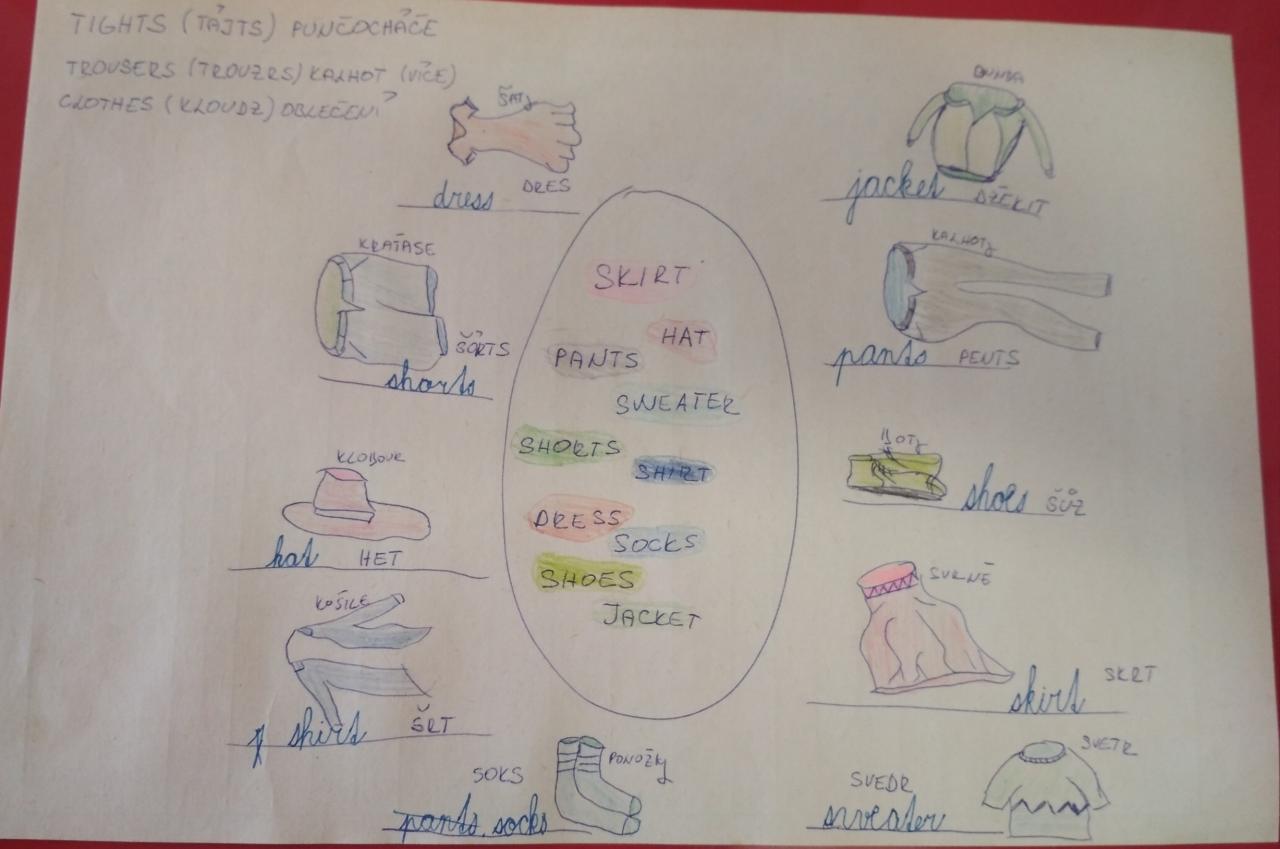 TIGHTS (TÁJTS) PUNČOCHÁČE
TROUSERS (TROUZRS) KALHOT (VÍCE)
CLOTHES (KLOUDZ) OBLEČENÍ
ŠATY
DRES
dress
BUNDA
jacket
DŽEKIT
KRAŤASE
ŠÓRTS
shorts
KALHOTY
pants PENTS
SKIRT
HAT
PANTS
SWEATER
SHORTS
SHIRT
DRESS
SOCKS
SHOES
JACKET
KLOBOUK
hat HET
BOTY
shoes ŠŮZ
KOŠILE
shirt ŠRT
SUKNĚ
SKRT
skirt
SOKS
PONOŽKY
pants socks
SVETR
SVEDR
sweater